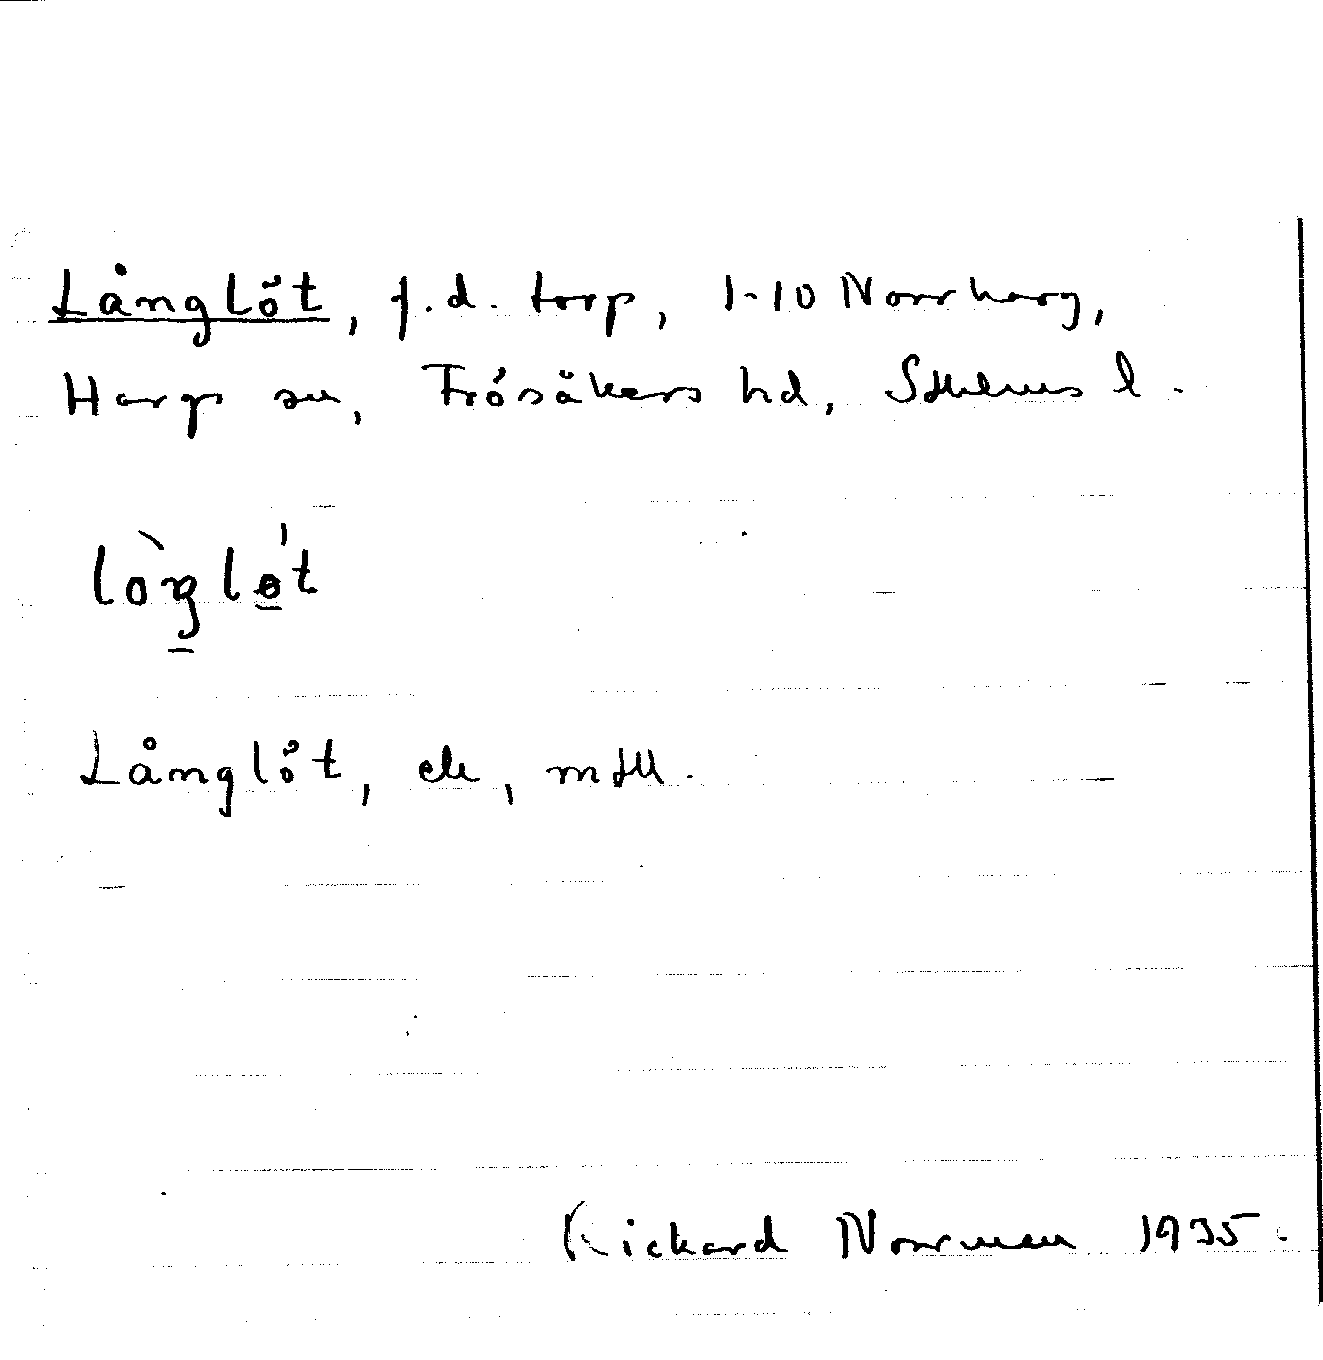 Långlöt, f.d. torp, 1-10 Norrharg,
Hargs sn, Frösåkers hd, Sthlms l.
lòŋlət
Långlöt, ek, mtll.
Rickard Norrman 1935.